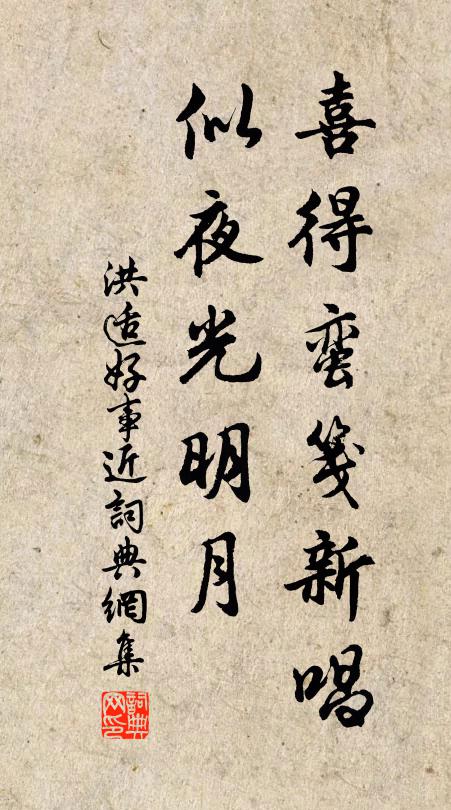 喜得蛮箋新唱
似夜光明月
洪适好事近詞典網集
詞典网印